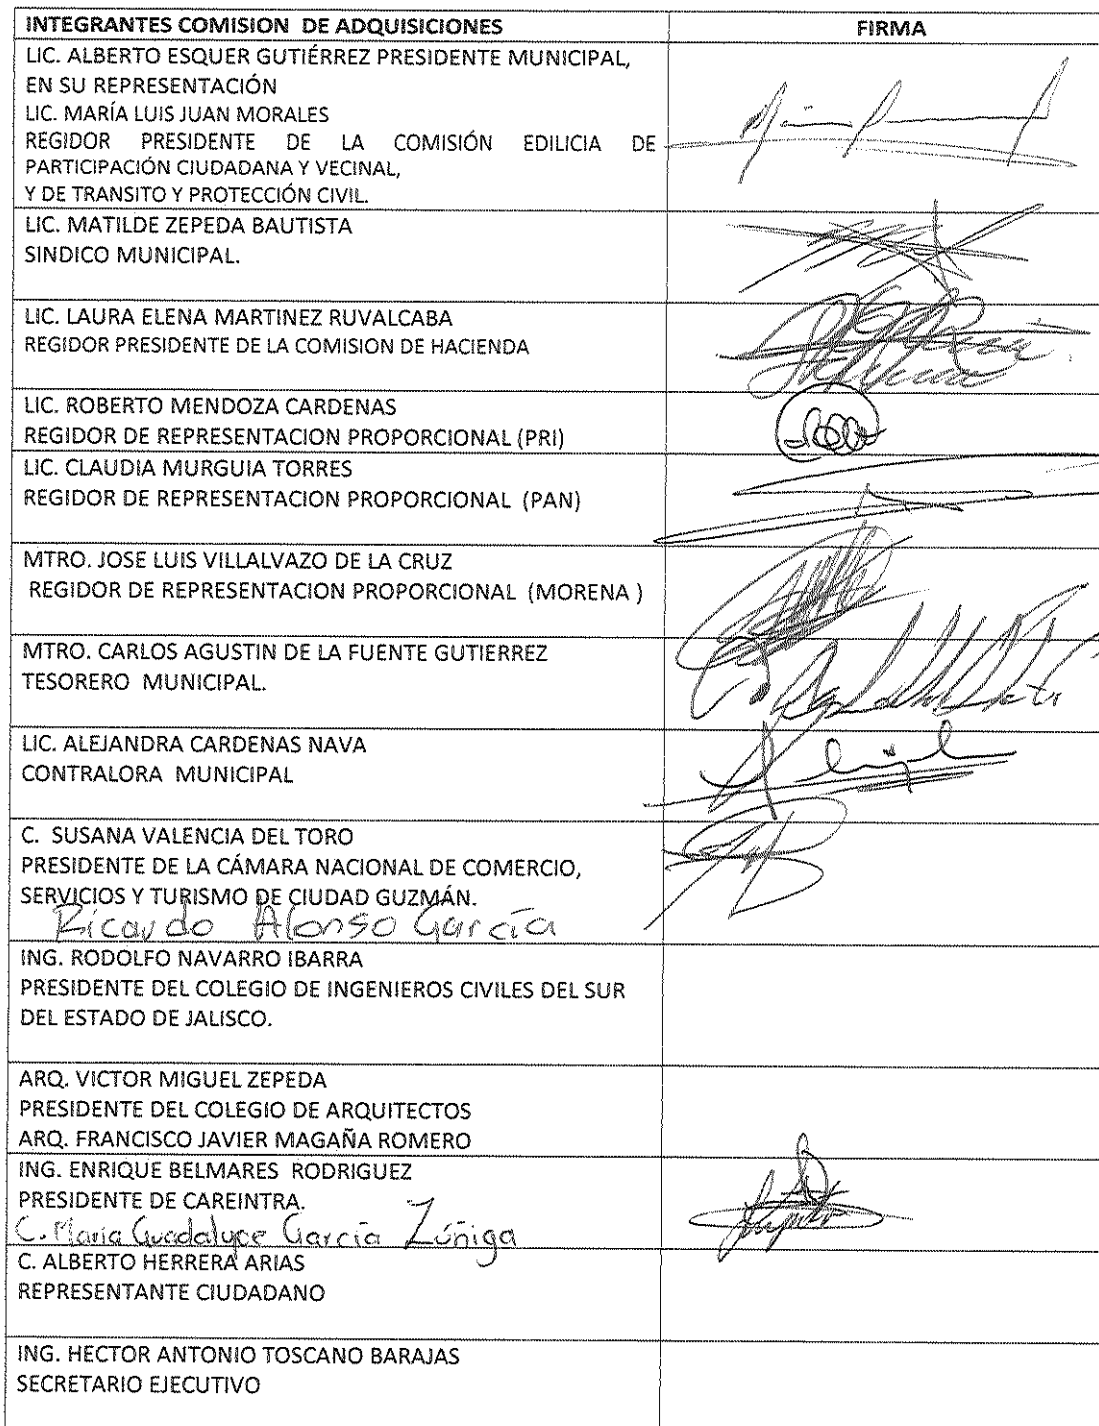 INTEGRANTES COMISION DE ADQUISICIONES FIRMA
LIC. ALBERTO ESQUER GUTIÉRREZ PRESIDENTE MUNICIPAL,
EN SU REPRESENTACIÓN
LIC. MARÍA LUIS JUAN MORALES
REGIDOR PRESIDENTE DE LA COMISIÓN EDILICIA DE
PARTICIPACIÓN CIUDADANA Y VECINAL,
Y DE TRANSITO Y PROTECCIÓN CIVIL.
LIC. MATILDE ZEPEDA BAUTISTA
SINDICO MUNICIPAL.
LIC. LAURA ELENA MARTINEZ RUVALCABA
REGIDOR PRESIDENTE DE LA COMISION DE HACIENDA
LIC. ROBERTO MENDOZA CARDENAS
REGIDOR DE REPRESENTACION PROPORCIONAL (PRI)
LIC. CLAUDIA MURGUIA TORRES
REGIDOR DE REPRESENTACION PROPORCIONAL (PAN)
MTRO. JOSE LUIS VILLALVAZO DE LA CRUZ
REGIDOR DE REPRESENTACION PROPORCIONAL (MORENA )
MTRO. CARLOS AGUSTIN DE LA FUENTE GUTIERREZ
TESORERO MUNICIPAL.
LIC. ALEJANDRA CARDENAS NAVA
CONTRALORA MUNICIPAL
C. SUSANA VALENCIA DEL TORO
PRESIDENTE DE LA CÁMARA NACIONAL DE COMERCIO,
SERVICIOS Y TURISMO DE CIUDAD GUZMÁN.
Ricardo Alonso García
ING. RODOLFO NAVARRO IBARRA
PRESIDENTE DEL COLEGIO DE INGENIEROS CIVILES DEL SUR
DEL ESTADO DE JALISCO.
ARQ. VICTOR MIGUEL ZEPEDA
PRESIDENTE DEL COLEGIO DE ARQUITECTOS
ARQ. FRANCISCO JAVIER MAGAÑA ROMERO
ING. ENRIQUE BELMARES RODRIGUEZ
PRESIDENTE DE CAREINTRA.
C. María Guadalupe García Zúñiga
C. ALBERTO HERRERA ARIAS
REPRESENTANTE CIUDADANO
ING. HECTOR ANTONIO TOSCANO BARAJAS
SECRETARIO EJECUTIVO